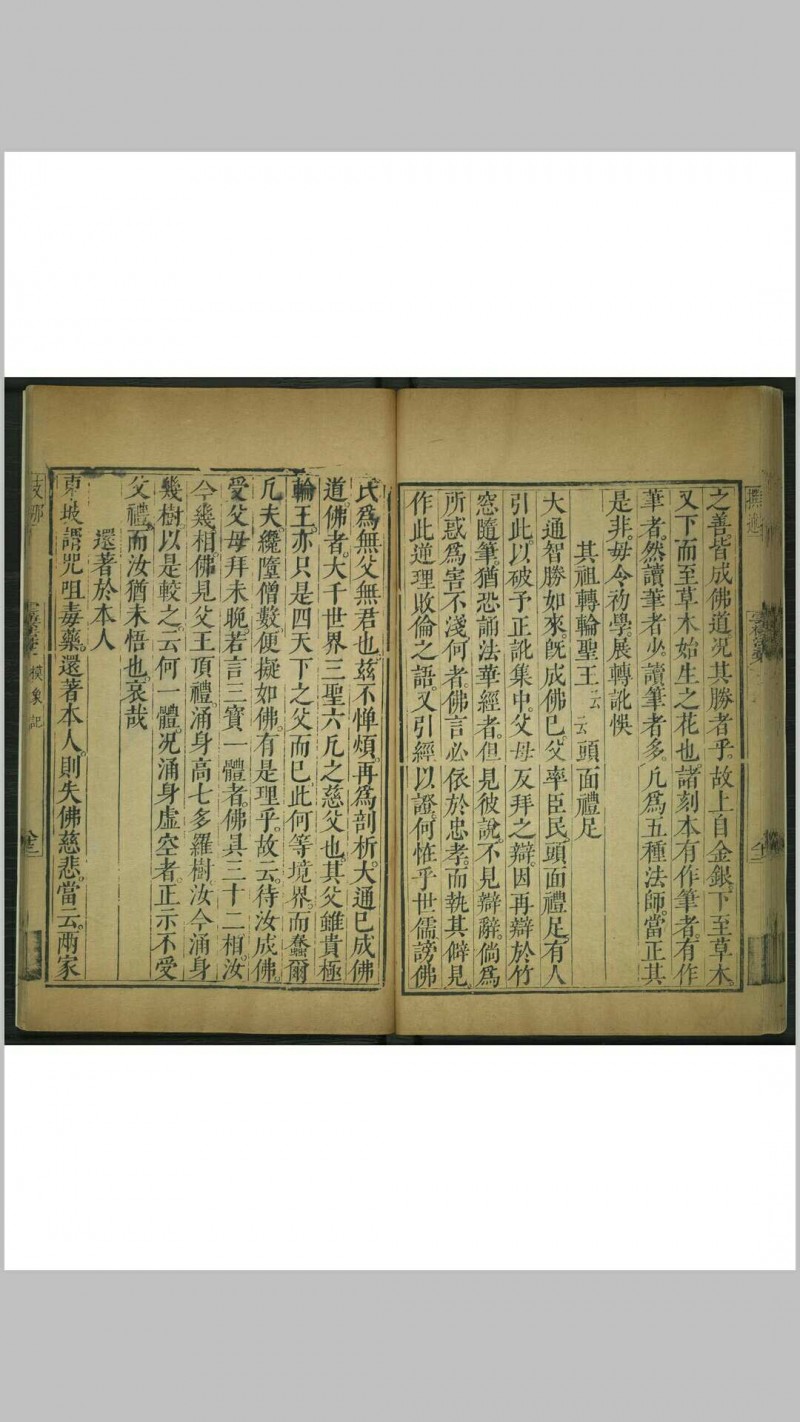 之善。皆成佛道。况其勝者乎。故上自金銀。下至草木。
又下而至草木始生之花也。諸刻本有作筆者。有作
筆者。然讀筆者少。讀筆者多。凡為五種法師。當正其
是非。毋令初學。展轉訛悞
其祖轉輪聖王云云頭面禮足
大通智勝如來。旣成佛已。父率臣民。頭面禮足。有人
引此。以破予正訛集中。父母反拜之辯。因再辯於竹
窓隨筆。猶恐誦法華經者。但見彼說。不見辯辭。倘為
所惑。為害不淺。何者。佛言必依於忠孝。而執其僻見。
作此逆理敗倫之語。又引經以證。何恠乎世儒謗佛
氏為無父無君也。兹不憚煩。再為剖析。大通已成佛
道。佛者。大千世界三聖六凡之慈父也。其父雖貴極
輪王。亦只是四天下之父而已。此何等境界。而蠢爾
凡夫。纔墮僧數。便擬如佛。有是理乎。故云。待汝成佛。
受父母拜未晚。若言三寶一體者。佛具三十二相。汝
今幾相。佛見父王頂禮。涌身高七多羅樹。汝今涌身
幾樹。以是較之。云何一體。况涌身虛空者。正示不受
父禮。而汝猶未悟也。哀哉
還著於本人
東坡謂咒咀毒藥。還著本人。則失佛慈悲。當云。兩家
模象記